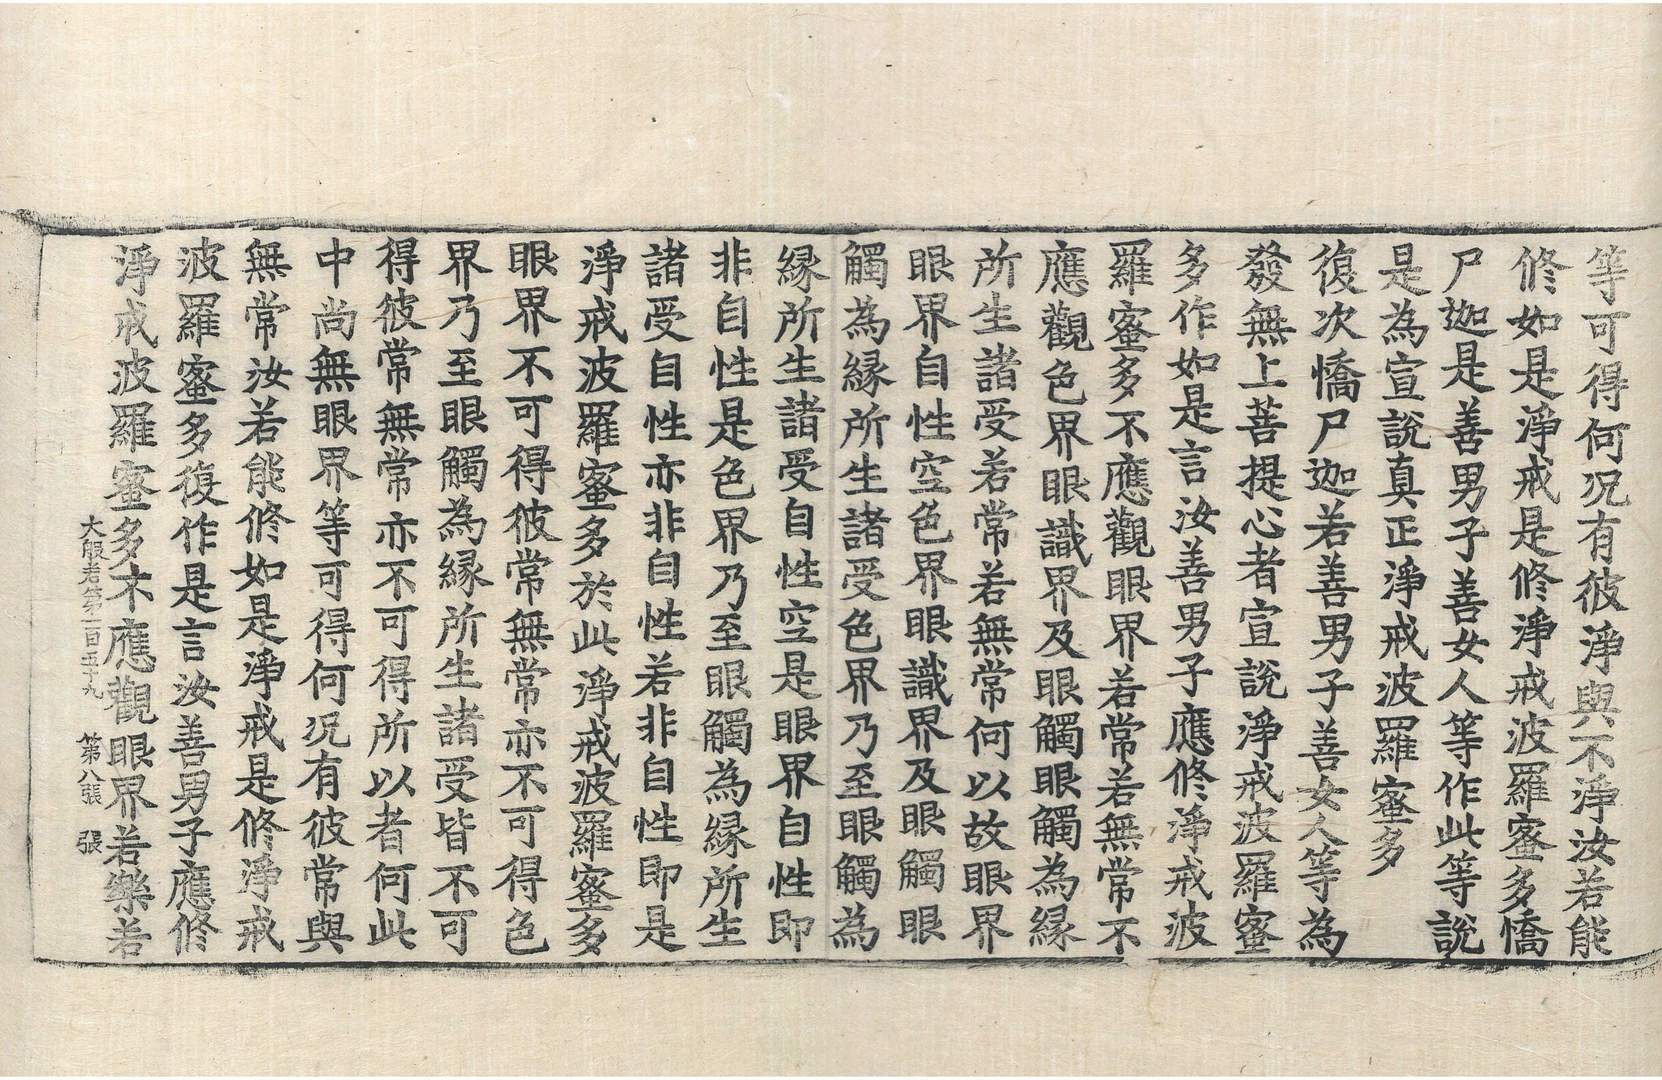 等可得何況有彼淨與不淨汝若能
修如是淨戒是修淨戒波羅蜜多憍
尸迦是善男子善女人等作此等說
是為宣說真正淨戒波羅蜜多
復次憍尸迦若善男子善女人等為
發無上菩提心者宣說淨戒波羅蜜
多作如是言汝善男子應修淨戒波
羅蜜多不應觀眼界若常若無常不
應觀色界眼識界及眼觸眼觸為緣
所生諸受若常若無常何以故眼界
眼界自性空色界眼識界及眼觸眼
觸為緣所生諸受色界乃至眼觸為
緣所生諸受自性空是眼界自性即
非自性是色界乃至眼觸為緣所生
諸受自性亦非自性若非自性即是
淨戒波羅蜜多於此淨戒波羅蜜多
眼界不可得彼常無常亦不可得色
界乃至眼觸為緣所生諸受皆不可
得彼常無常亦不可得所以者何此
中尚無眼界等可得何況有彼常與
無常汝若能修如是淨戒是修淨戒
波羅蜜多復作是言汝善男子應修
淨戒波羅蜜多不應觀眼界若樂若
大般若第一百五十九 第八張 張